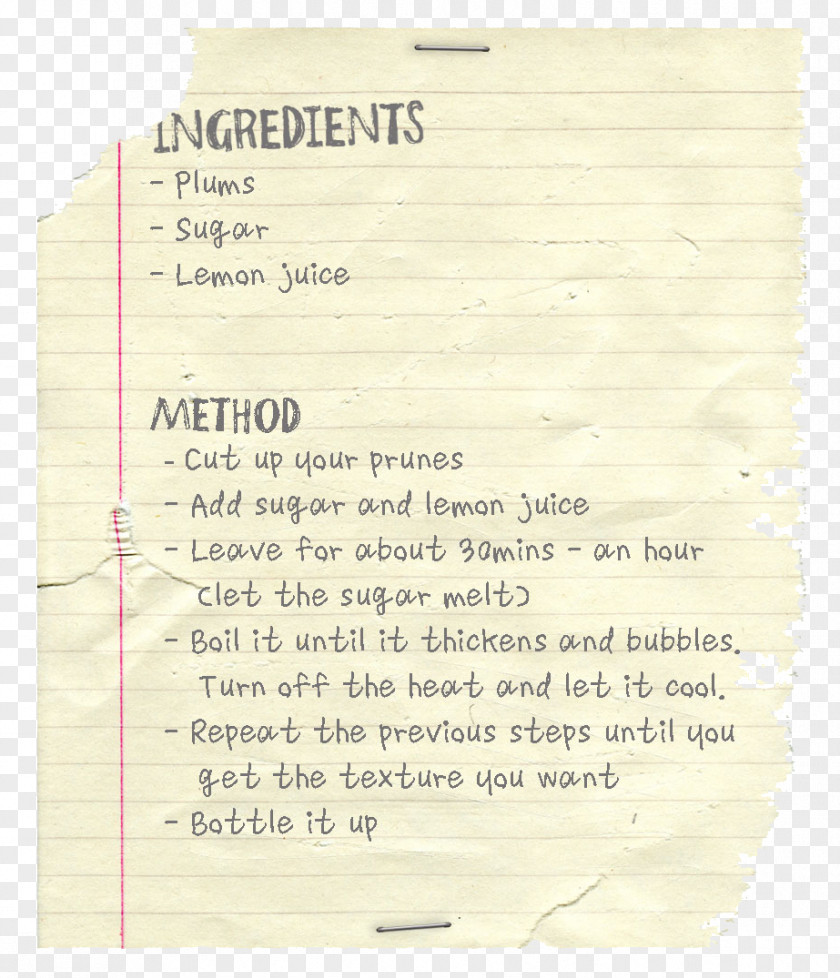 INGREDIENTS
- Plums
- Sugar
- Lemon juice
METHOD
- Cut up your prunes
- Add sugar and lemon juice
- Leave for about 30mins - an hour
(let the sugar melt)
- Boil it until it thickens and bubbles.
Turn off the heat and let it cool.
- Repeat the previous steps until you
get the texture you want
- Bottle it up